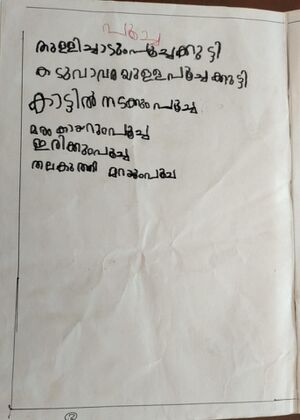 പൂച്ച
തുള്ളിച്ചാടുംപൂച്ചക്കുട്ടി
കടുവാവരയുള്ളപൂച്ചക്കുട്ടി
കാട്ടിൽ നടക്കുംപൂച്ച
മരം കയറുംപൂച്ച
ഇരിക്കുംപൂച്ച
തലകുത്തി മറയുംപൂച്ച